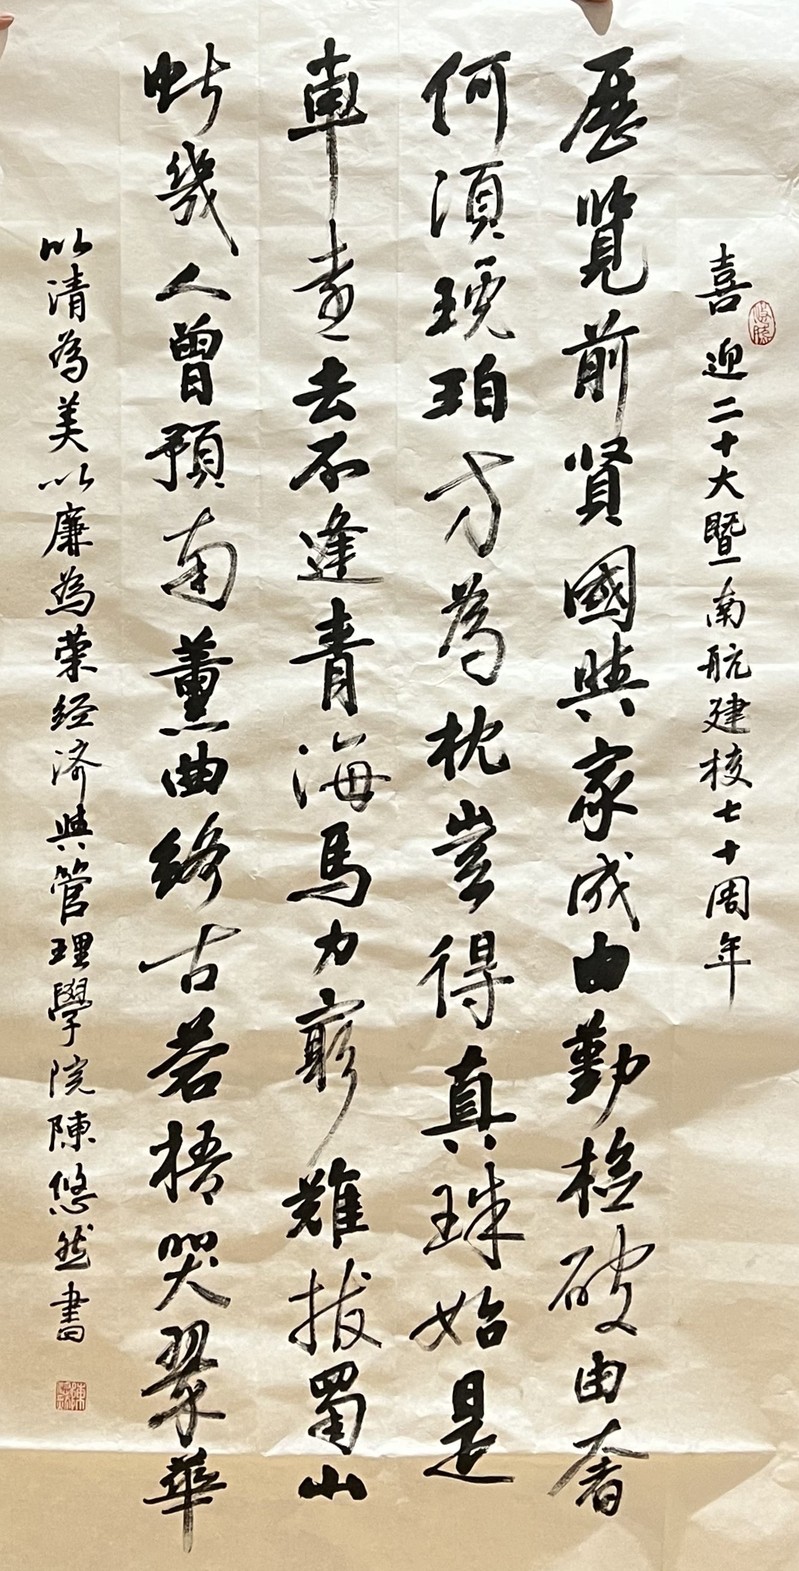 喜迎二十大暨南航建校七十周年
歷覽前賢國與家成由勤儉破由奢
何須琥珀方為枕豈得真珠始是
車遠去不逢青海馬力窮難拔蜀山
蛇幾人曾預南薰曲終古蒼梧哭翠華
以清為美以廉為榮经济與管理學院陳悠然書